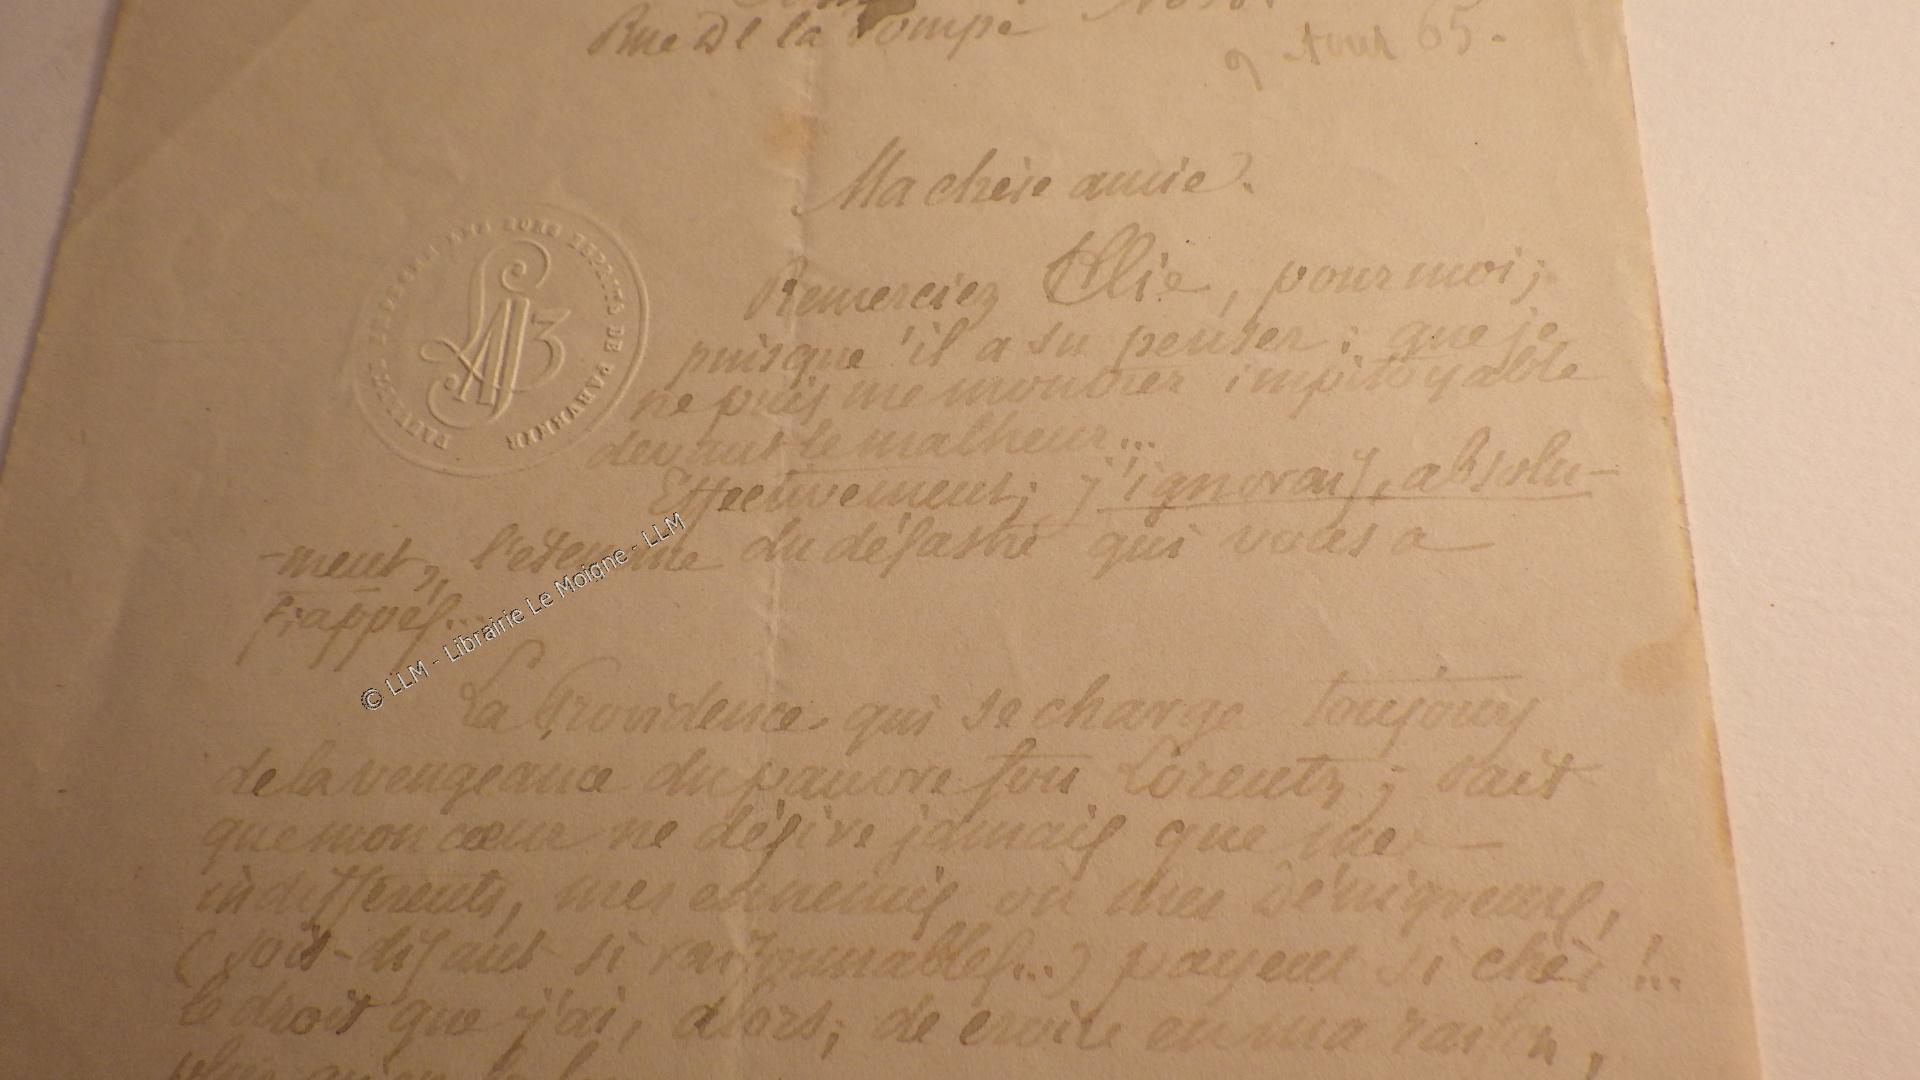 Rue De la Pompe
9 Aout 65.
Ma chère amie.
Remerciez Elie, pour moi;
puisqu'il a su penser; que je
ne puis me montrer impitoyable
devant le malheur...
Effectivement; j'ignorais, absolu-
-ment, l'étendue du désastre qui vous a
frappés...
© LLM - Librairie Le Moigne - LLM
La Providence, qui se charge toujours
de la vengeance du pauvre fou Lorentz; sait
que mon cœur ne désire jamais que mes
indifférents, mes ennemis ou mes Dénigreurs,
(soit-disant si raisonnables...) payent si cher!...
le droit que j'ai, alors; de croire en ma raison,